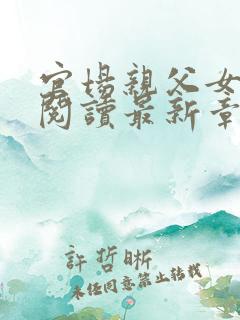 官場親父女
閱讀最新章
許哲晰
未經同意禁止轉載